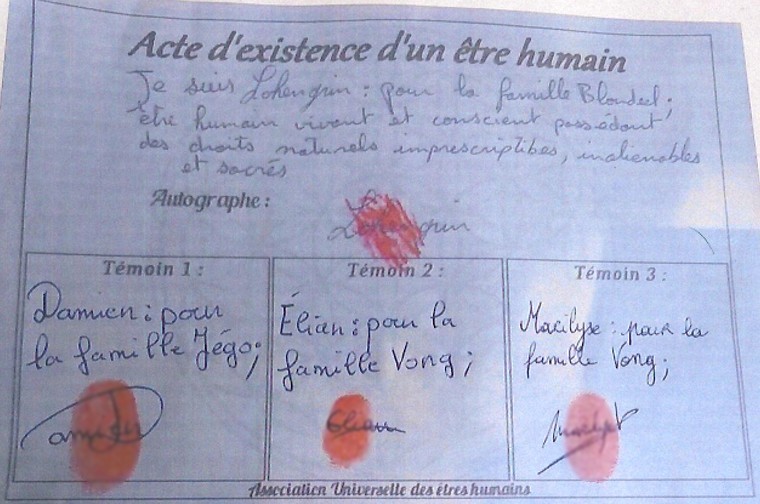 Acte d'existence d'un être humain
Je suis Lohengrin : pour la famille Blondeel ;
être humain vivant et conscient possédant
des droits naturels imprescriptibles, inaliénables
et sacrés
Autographe :
Lohengrin
Témoin 1 :
Damien : pour
la famille Jégo ;
Témoin 2 :
Élian : pour la
famille Vong ;
Elian
Témoin 3 :
Maëilyse : pour la
famille Vong ;
Association Universelle des êtres humains